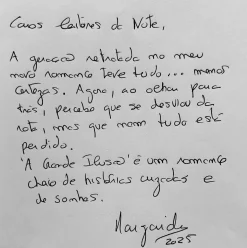 Caros Leitores de Note,
A geração retratada no meu
novo romance teve tudo... menos
certezas. Agora, ao olhar para
trás, percebo que se desviou da
rota, mas que nem tudo está
perdido.
'A Grande Ilusão' é um romance
cheio de histórias cruzadas e
de sonhos.
Margarida
2025